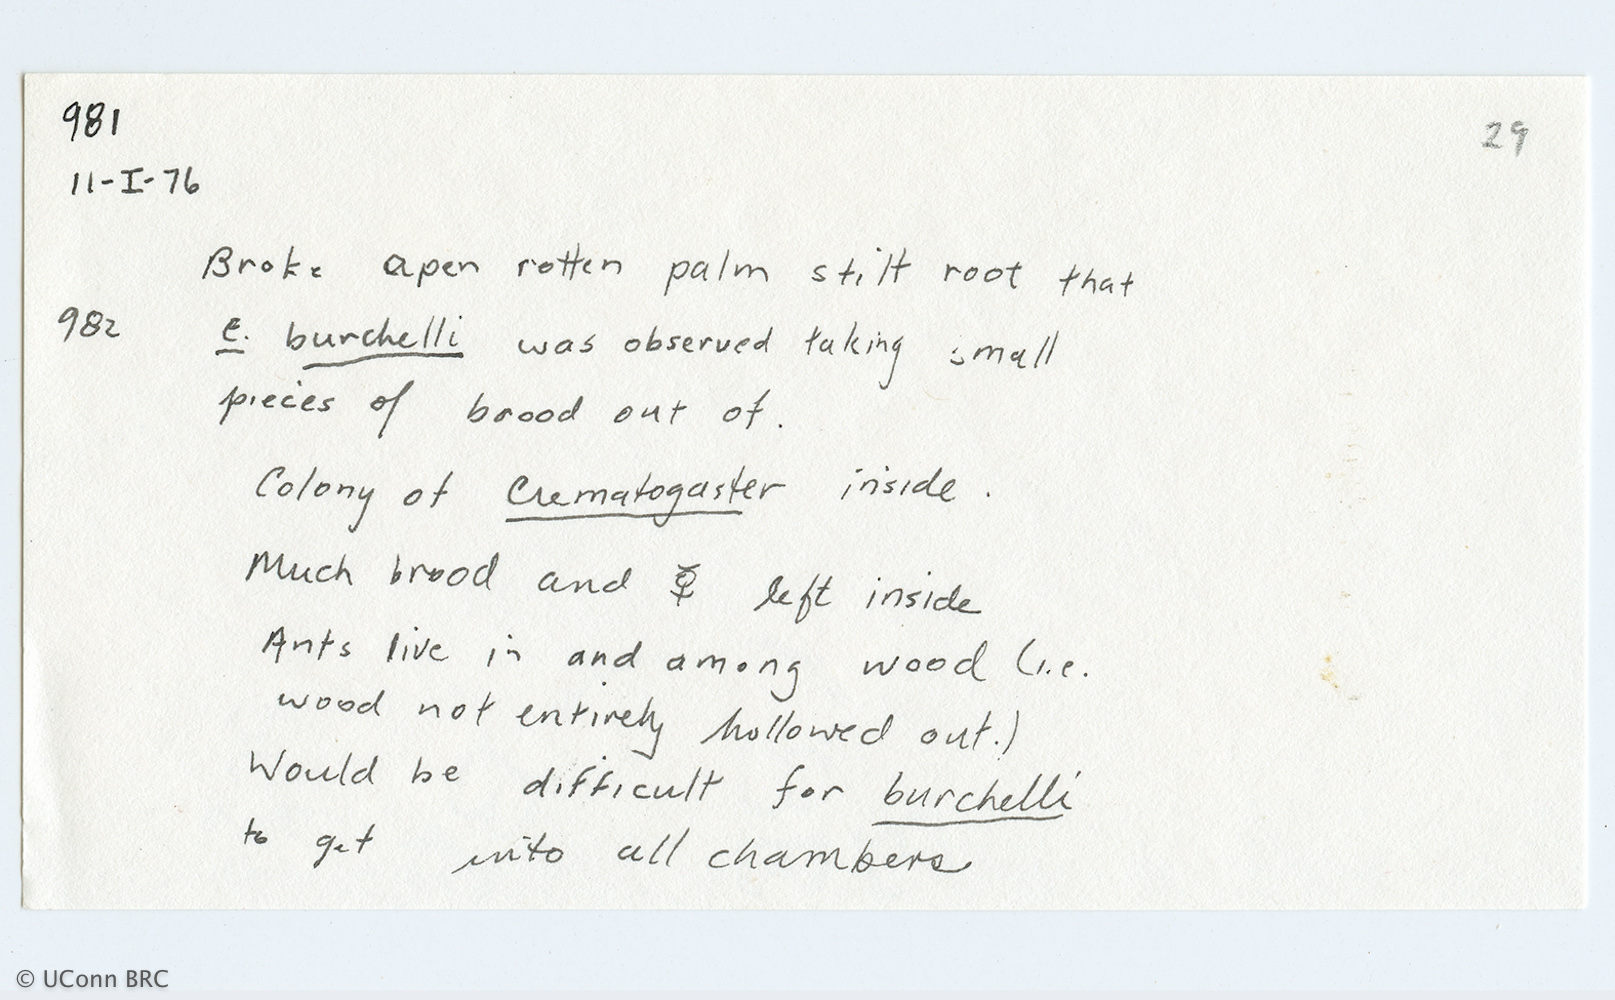 981
29
11-I-76
Broke apen rotten palm stilt root that
982 E. burchelli was observed taking small
pieces of brood out of.
Colony of Crematogaster inside.
Much brood and ☿ left inside
Ants live in and among wood (i.e.
wood not entirely hollowed out.)
Would be difficult for burchelli
to get into all chambers
© UConn BRC